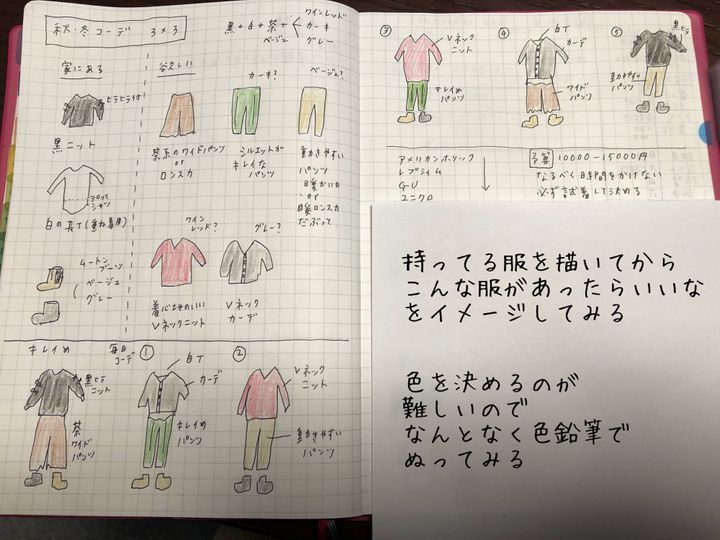 秋・冬コーデ 3×3
黒+白+茶+
ワインレッド
カーキ
グレー
ベージュ
家にある
ヒラヒラ付
黒ニット
白の長T(重ね着用)
ムートンブーツ
ベージュ
グレー
欲しい
茶系のワイドパンツ
or
ロンスカ
カーキ?
シルエットが
キレイな
パンツ
ベージュ?
動きやすい
パンツ
暖かいの
or
暖ロンスカ
だぶって
ワイン
レッド?
着心地のいい
Vネックニット
グレー?
Vネック
カーデ
キレイめ
黒ヒラ
ニット
茶
ワイド
パンツ
毎日
コーデ
①
白T
カーデ
キレイめ
パンツ
②
Vネック
ニット
動きやすい
パンツ
③
Vネック
ニット
キレイめ
パンツ
④
白T
カーデ
ワイド
パンツ
⑤
黒ヒラ
動きやすい
パンツ
アメリカンホリック
レプライム
GU
ユニクロ
予算 10000-15000円
なるべく時間をかけない
必ず試着して決める
持ってる服を描いてから
こんな服があったらいいな
をイメージしてみる
色を決めるのが
難しいので
なんとなく色鉛筆で
ぬってみる